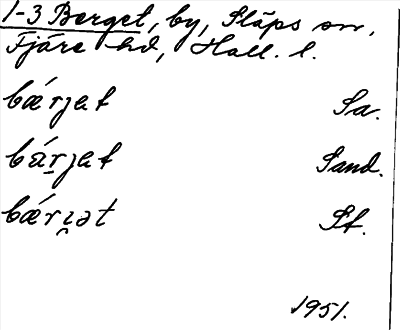 1-3 Berget, by, Släps sn,
Fjäre hd, Hall. l.
bǽrjet Sa.
bä́r̠jet Sand.
bǽri̯ət Sf.
1951.